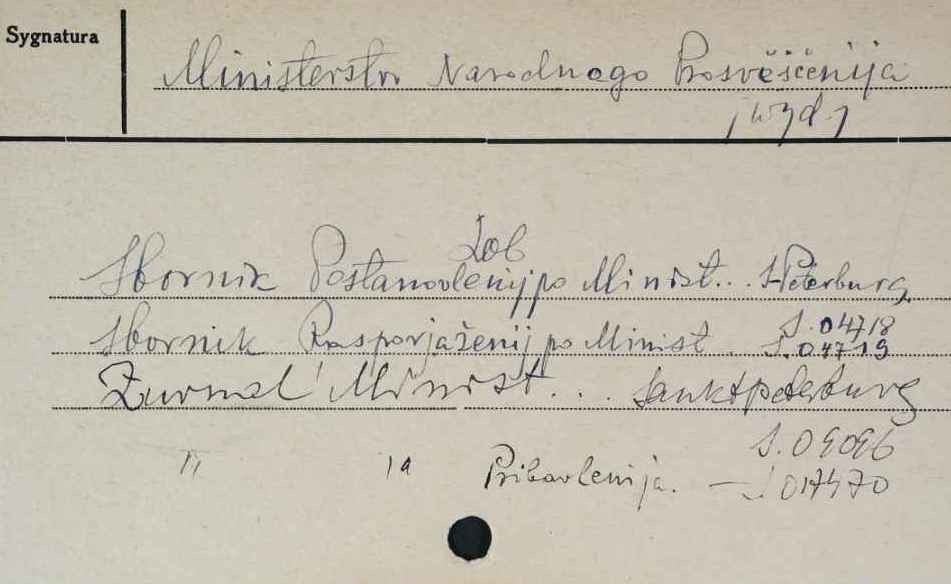 Sygnatura
Ministerstvo Narodnogo Prosvěščenija
/wyd./
Zob
Sbornik Postanovlenij po Minist... S-Peterburg.
S. 04718
Sbornik Rasporjaženij po Minist. S. 04719
Žurnal Minist... Sanktpeterburg
S. 09096
" " Pribavlenija. — S. 017470